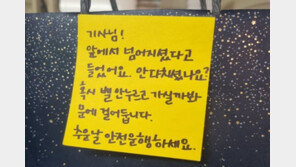 기사님!
앞에서 넘어지셨다고
들었어요. 안다치셨나요?
혹시 벨 안누르고 가실까봐
문에 걸어둡니다.
추운날 안전운행하세요.